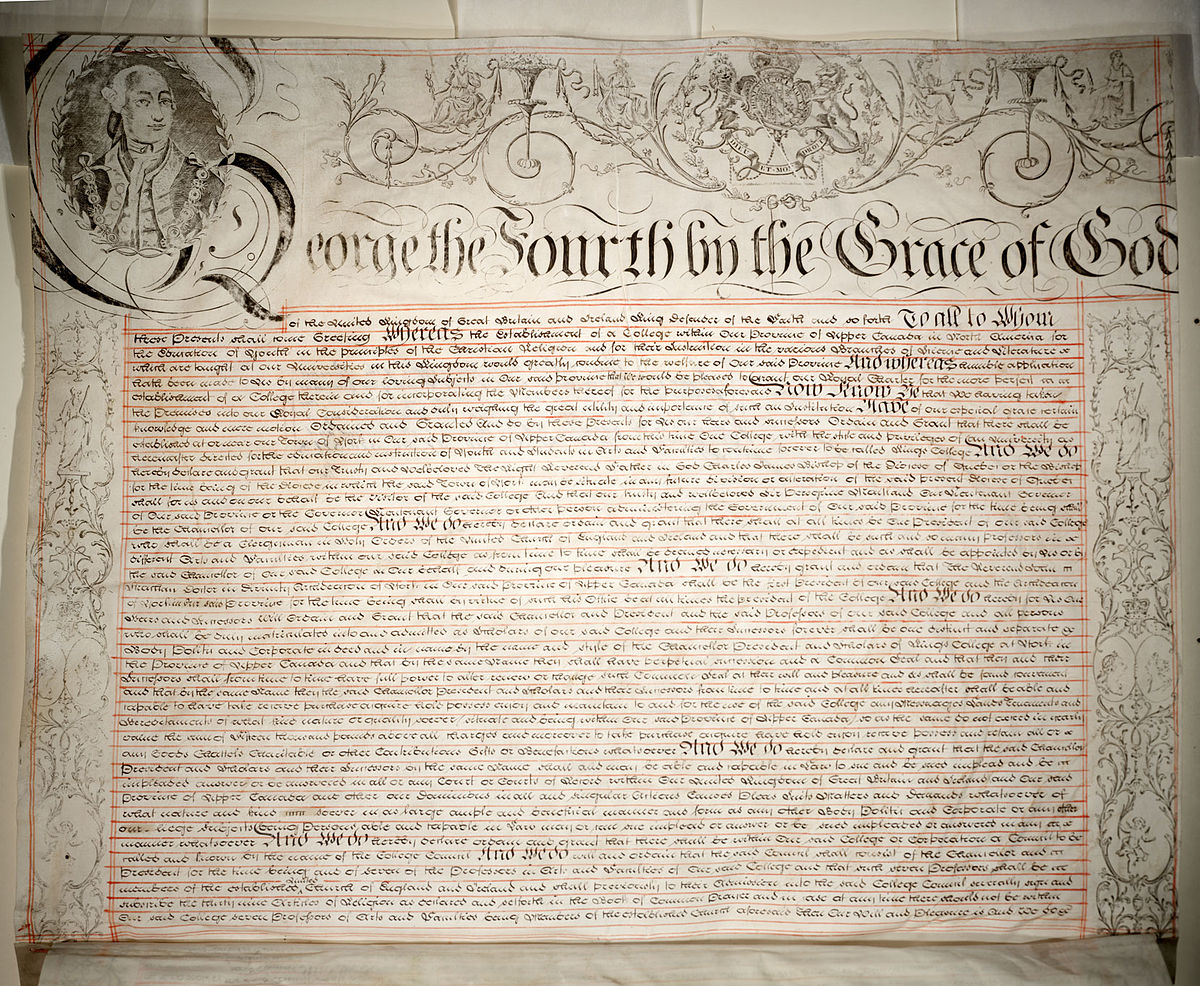 DIEU ET MON DROIT
George the Fourth by the Grace of God
of the United Kingdom of Great Britain and Ireland King Defender of the Faith and so forth To all to Whom
these Presents shall come Greeting Whereas the Establishment of a College within Our Province of Upper Canada in North America for
the Education of Youth in the principles of the Christian Religion and for their Instruction in the various Branches of Science and Literature
which are taught at our Universities in this Kingdom would greatly conduce to the welfare of Our said Province And whereas humble application
hath been made to Us by many of our loving Subjects in Our said Province that We would be pleased to Grant our Royal Charter for the more perfect
establishment of a College therein and for incorporating the Members thereof for the purposes aforesaid Now Know Ye that We having taken
the Premises into our Royal Consideration and duly weighing the great utility and importance of such an Institution Have of our especial grace certain
knowledge and mere motion Ordained and Granted And do by these Presents for Us our Heirs and Successors Ordain and Grant that there shall be
established at or near our Town of York in Our said Province of Upper Canada from this time One College with the stile and privileges of an University as
hereinafter directed for the education and instruction of Youth and Students in Arts and Faculties to continue forever to be called Kings College And We do
hereby declare and grant that our Trusty and Welbeloved The Right Reverend Father in God Charles James Bishop of the Diocese of Quebec or the Bishop
for the time being of the Diocese in which the said Town of York may be situate in any future division or alteration of the said present Diocese of Quebec
shall for us and on our behalf be the visitor of the said College And that our trusty and welbeloved Sir Peregrine Maitland Our Lieutenant Governor
of Our said Province or the Governor Lieutenant Governor or other person administering the Government of Our said Province for the time being shall
be the Chancellor of our said College And We do hereby declare ordain and grant that there shall at all times be One President of our said College
who shall be a Clergyman in Holy Orders of the United Church of England and Ireland and that there shall be such and so many professors in
different Arts and Faculties within our said College as from time to time shall be deemed necessary or expedient and as shall be appointed by Us or by
the said Chancellor of our said College in Our behalf and during our pleasure And We do hereby grant and ordain that The Reverend John
Strachan Doctor in Divinity Archdeacon of York in Our said Province of Upper Canada shall be the first President of our said College and the Archdeacon
of York in our said Province for the time being shall by virtue of such his Office be at all times the president of the College And We do hereby for Us Our
Heirs and Successors Will Ordain and Grant that the said Chancellor and President and the said Professors of our said College and all persons
who shall be duly matriculated into and admitted as Scholars of our said College and their Successors forever shall be one distinct and separate
Body Politic and Corporate in deed and in name by the name and style of the Chancellor President and Scholars of Kings College at York in
the Province of Upper Canada and that by the same Name they shall have perpetual succession and a Common Seal and that they and their
Successors shall from time to time have full power to alter renew or change such Common Seal at their will and pleasure and as shall be found convenient
and that by the same Name they the said Chancellor President and Scholars and their Successors from time to time and at all times hereafter shall be able and
capable to have take receive purchase acquire hold possess enjoy and maintain to and for the use of the said College any Messuages Lands Tenements and
Hereditaments of what kind nature or quality soever situate and being within Our said Province of Upper Canada so as the same do not exceed in yearly
value the sum of fifteen thousand pounds above all charges and moreover to take purchase acquire have hold enjoy receive possess and retain all or
any Goods Chattels Charitable or other Contributions Gifts or Benefactions whatsoever And We do hereby declare and grant that the said Chancellor
President and Scholars and their Successors by the same Name shall and may be able and capable in Law to sue and be sued implead and be
impleaded answer or be answered in all or any Court or Courts of Record within Our United Kingdom of Great Britain and Ireland and Our said
Province of Upper Canada and other our Dominions in all and singular Actions Causes Pleas Suits Matters and Demands whatsoever of
what nature and kind soever in as large ample and beneficial manner and form as any other Body Politic and Corporate or any other
our liege subjects being Persons able and capable in Law may or can sue implead or answer or be sued impleaded or answered in any
manner whatsoever And We do hereby declare ordain and grant that there shall be within Our said College or Corporation a Council to be
called and known by the name of the College Council And We do will and ordain that the said Council shall consist of the Chancellor and
President for the time being and of seven of the Professors in Arts and Faculties of Our said College and that such seven Professors shall be
members of the established United Church of England and Ireland and shall previously to their Admission into the said College Council severally sign and
subscribe the thirty nine Articles of Religion as declared and set forth in the Book of Common Prayer and in case at any time there should not be within
Our said College seven Professors of Arts and Faculties being Members of the established Church aforesaid then Our Will and Pleasure is And We do